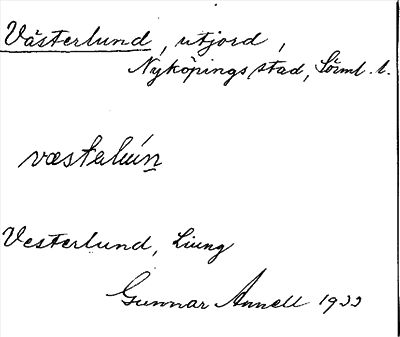 Västerlund, utjord,
Nyköpings stad, Sörml. l.
Vesterlund, Liung
Gunnar Annell 1933